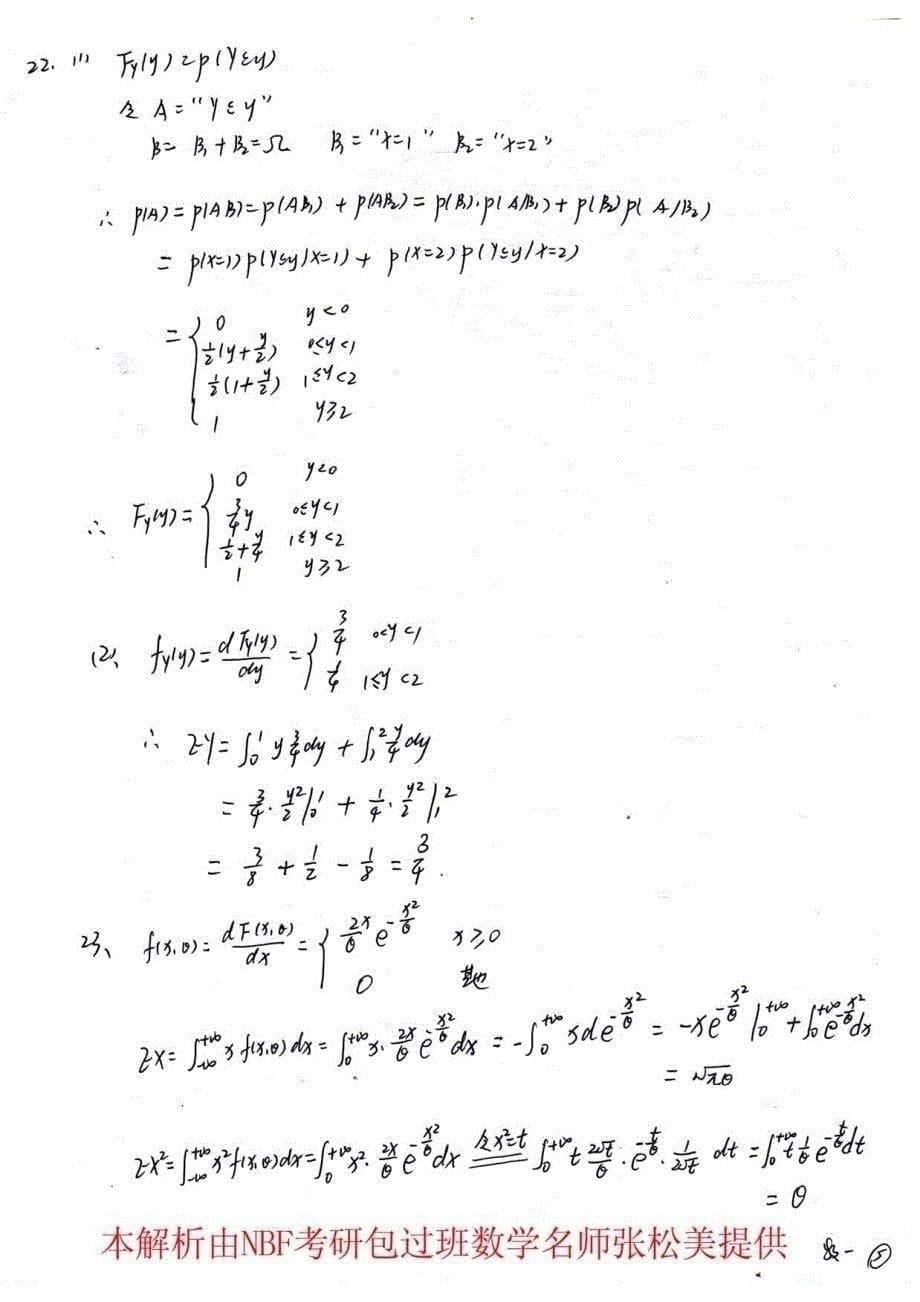 22. (1) F_Y(y) = P(Y≤y)
令 A = "Y≤y"
B = B₁ + B₂ = Ω B₁ = "X=1" B₂ = "X=2"
∴ P(A) = P(AB) = P(AB₁) + P(AB₂) = P(B₁)·P(A/B₁) + P(B₂)P(A/B₂)
= P(X=1)P(Y≤y/X=1) + P(X=2)P(Y≤y/X=2)
= { 0 y<0
½(y+y/2) 0≤y<1
½(1+y/2) 1≤y<2
1 y≥2
∴ F_Y(y) = { 0 y<0
¾y 0≤y<1
½+y/4 1≤y<2
1 y≥2
(2)、 f_Y(y) = dF_Y(y)/dy = { ¾ 0<y<1
¼ 1≤y<2
∴ EY = ∫₀¹ y¾dy + ∫₁² y/4 dy
= ¾·y²/2|₀¹ + ¼·y²/2|₁²
= 3/8 + 1/2 - 1/8 = 3/4.
23、 f(x,θ) = dF(x,θ)/dx = { 2x/θ e^(-x²/θ) x≥0
0 其他
EX = ∫_{-∞}^{+∞} x f(x,θ)dx = ∫₀^{+∞} x·2x/θ e^(-x²/θ)dx = -∫₀^{+∞} x d e^(-x²/θ) = -xe^(-x²/θ)|₀^{+∞} + ∫₀^{+∞} e^(-x²/θ)dx
= √πθ
EX² = ∫_{-∞}^{+∞} x²f(x,θ)dx = ∫₀^{+∞} x²·2x/θ e^(-x²/θ)dx 令x²=t ∫₀^{+∞} t 2√t/θ·e^(-t/θ)·1/2√t dt = ∫₀^{+∞} t 1/θ e^(-t/θ)dt
= θ
本解析由NBF考研包过班数学名师张松美提供 数一 ⑤